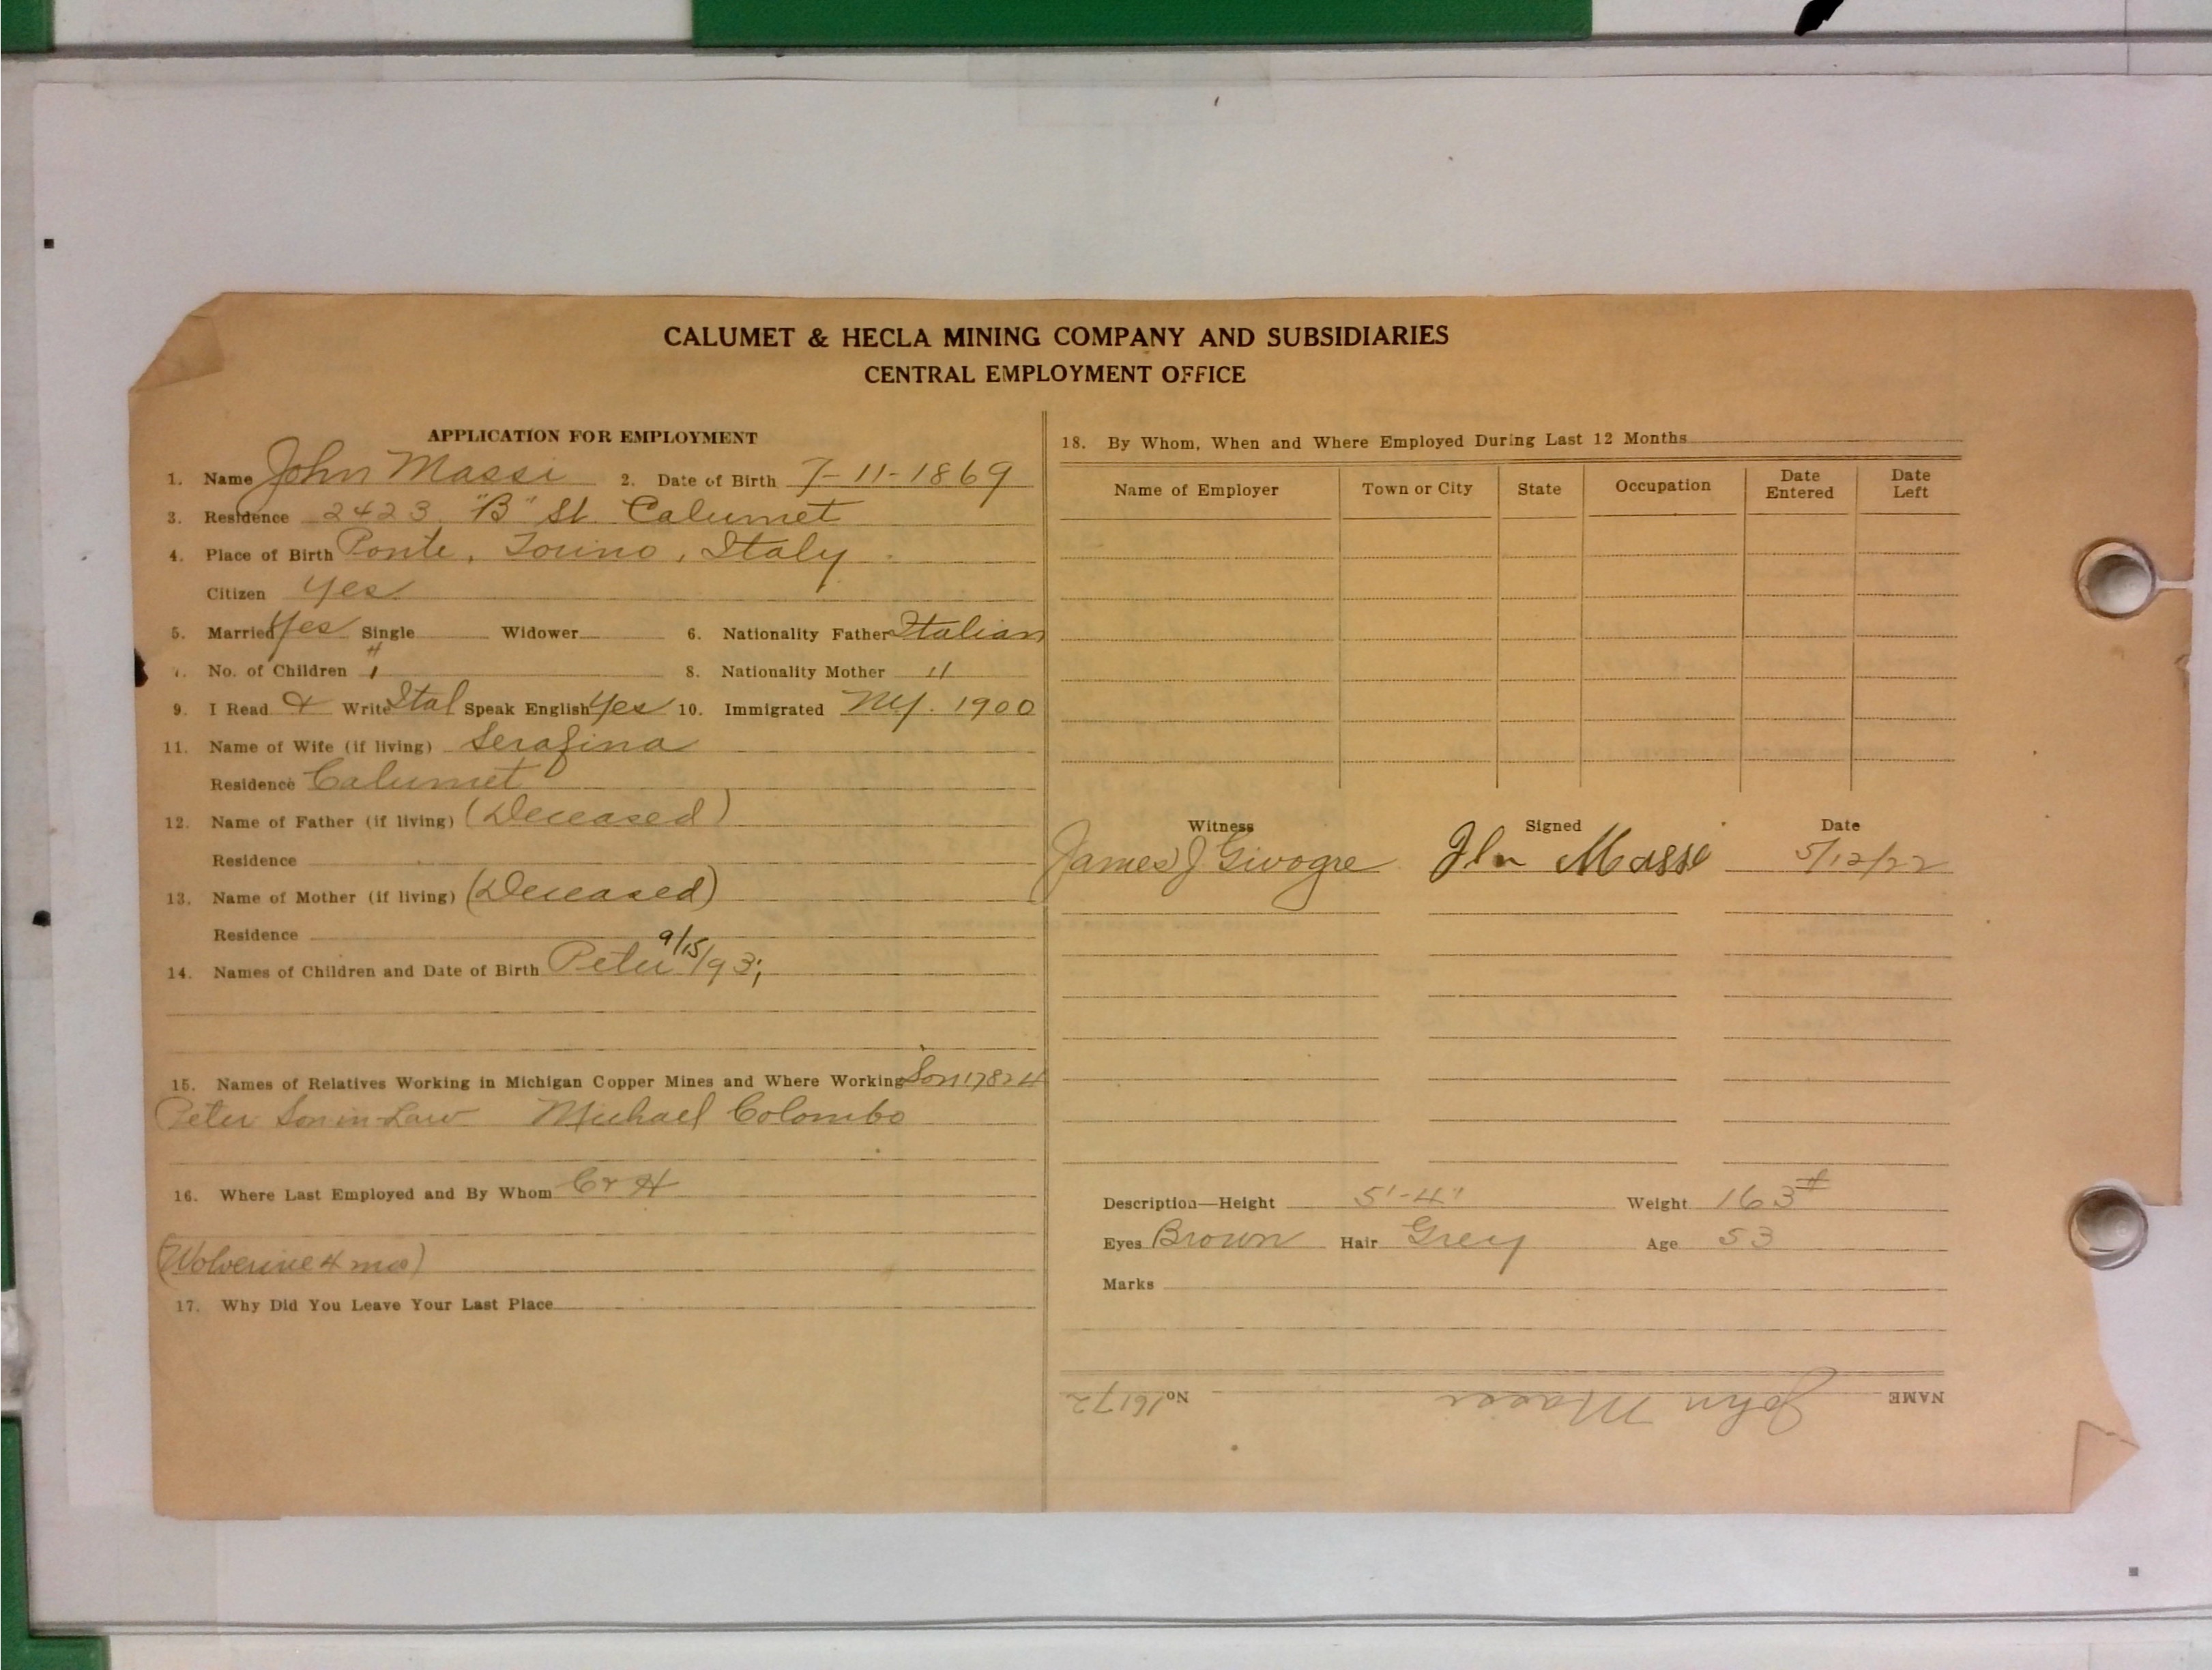 CALUMET & HECLA MINING COMPANY AND SUBSIDIARIES
CENTRAL EMPLOYMENT OFFICE
APPLICATION FOR EMPLOYMENT
1. Name John Massi 2. Date of Birth 7-11-1869
3. Residence 2423 "B" St. Calumet
4. Place of Birth Ponte, Torino, Italy
Citizen Yes
5. Married Yes Single Widower 6. Nationality Father Italian
No. of Children 1 8. Nationality Mother "
9. I Read & Write Ital Speak English Yes 10. Immigrated NY. 1900
11. Name of Wife (if living) Serafina
Residence Calumet
12. Name of Father (if living) (Deceased)
Residence
13. Name of Mother (if living) (Deceased)
Residence
14. Names of Children and Date of Birth Peter 9/15/93;
15. Names of Relatives Working in Michigan Copper Mines and Where Working Son 17824
Peter Son in-Law Michael Colombo
16. Where Last Employed and By Whom C & H
(Wolverine 4 mos)
17. Why Did You Leave Your Last Place
18. By Whom, When and Where Employed During Last 12 Months
Name of Employer Town or City State Occupation Date Entered Date Left
Witness Signed Date
James J Givogre John Massi 5/12/22
Description—Height 5'-4" Weight 163#
Eyes Brown Hair Grey Age 53
Marks
NAME John Massi No 16172